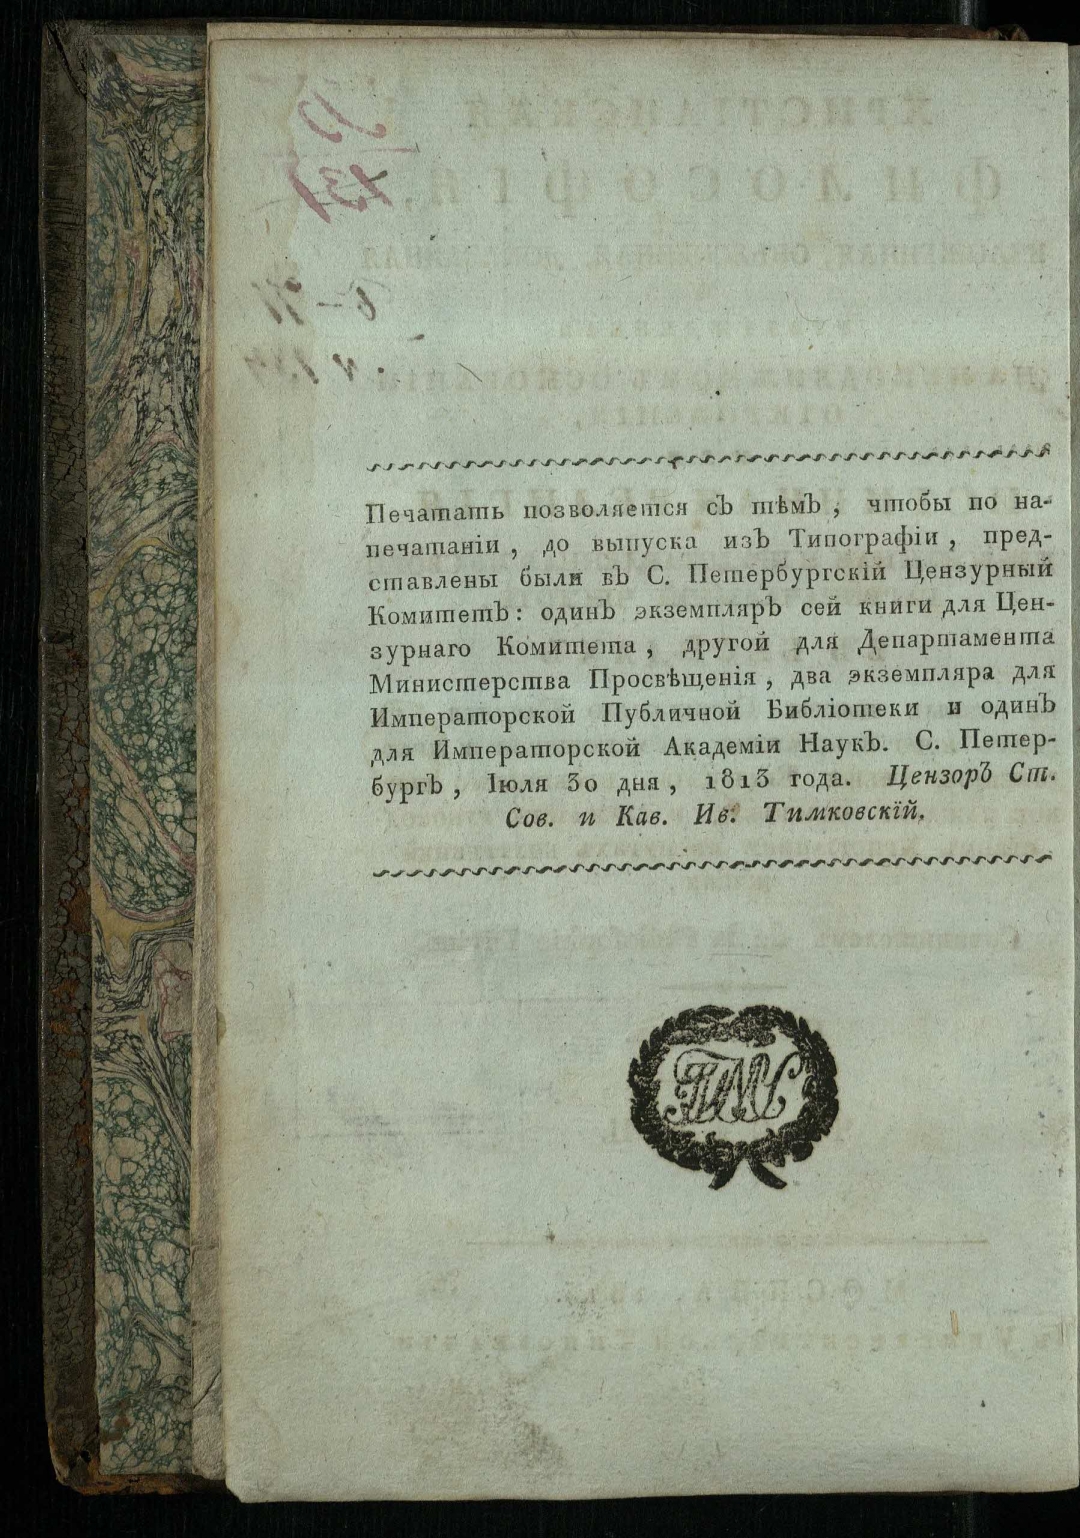 Печатать позволяется съ тѣмъ, чтобы по на-
печатаніи, до выпуска изъ Типографіи, пред-
ставлены были въ С. Петербургскій Цензурный
Комитетъ: одинъ экземпляръ сей книги для Цен-
зурнаго Комитета, другой для Департамента
Министерства Просвѣщенія, два экземпляра для
Императорской Публичной Библіотеки и одинъ
для Императорской Академіи Наукъ. С. Петер-
бургъ, Іюля 30 дня, 1813 года. Цензоръ Ст.
Сов. и Кав. Ив. Тимковскій.